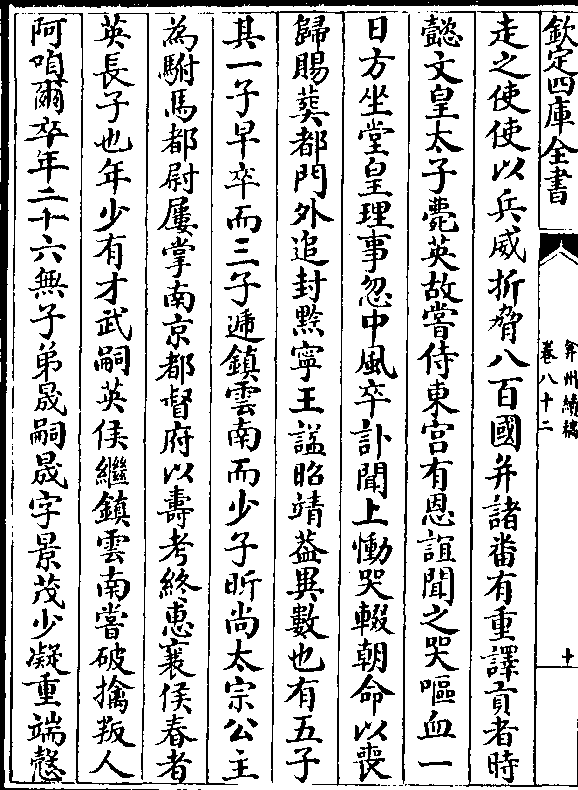 欽定四庫全書
弇州續稿
卷八十二
十
走之使使以兵威折脅八百國并諸畨有重譯貢者時
懿文皇太子薨英故嘗侍東宫有恩誼聞之哭嘔血一
日方坐堂皇理事忽中風卒訃聞上慟哭輟朝命以喪
歸賜葬都門外追封黔寧王諡昭靖葢異數也有五子
其一子早卒而三子遞鎮雲南而少子昕尚太宗公主
為駙馬都尉屢掌南京都督府以壽考終惠襄侯春者
英長子也年少有才武嗣英侯繼鎮雲南嘗破擒叛人
阿咱爾卒年二十六無子弟晟嗣晟字景茂少凝重端慤